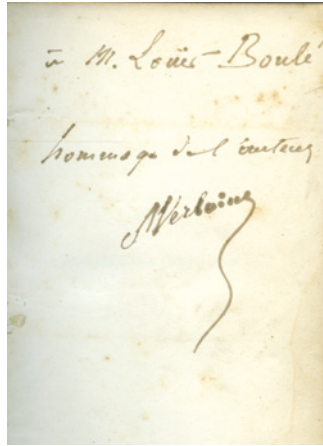 à M. Loüis Boulé
hommage de l'auteur
PVerlaine